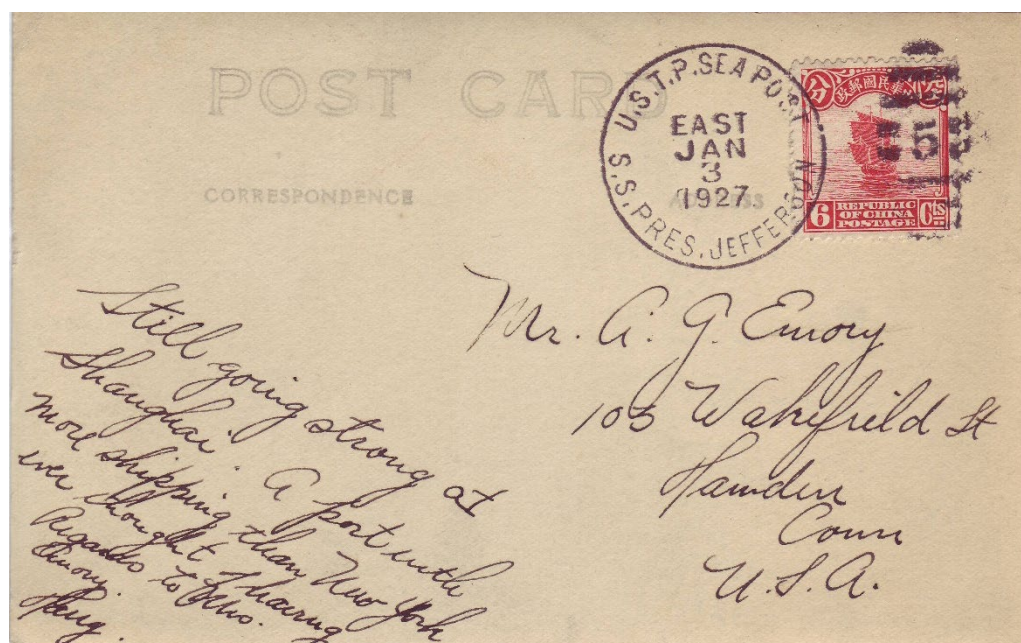 POST CARD
CORRESPONDENCE
ADDRESS
U.S.T.P. SEA POST
EAST
JAN
3
1927
S.S. PRES. JEFFERSON
5
中華民國郵政
分
6 REPUBLIC Cts
OF CHINA
POSTAGE
Mr. A. G. Emory
105 Wakefield St
Hamden
Conn
U.S.A.
Still going strong at
Shanghai. A port with
more shipping than New York
ever thought of having
Regards to Mrs.
Emory.